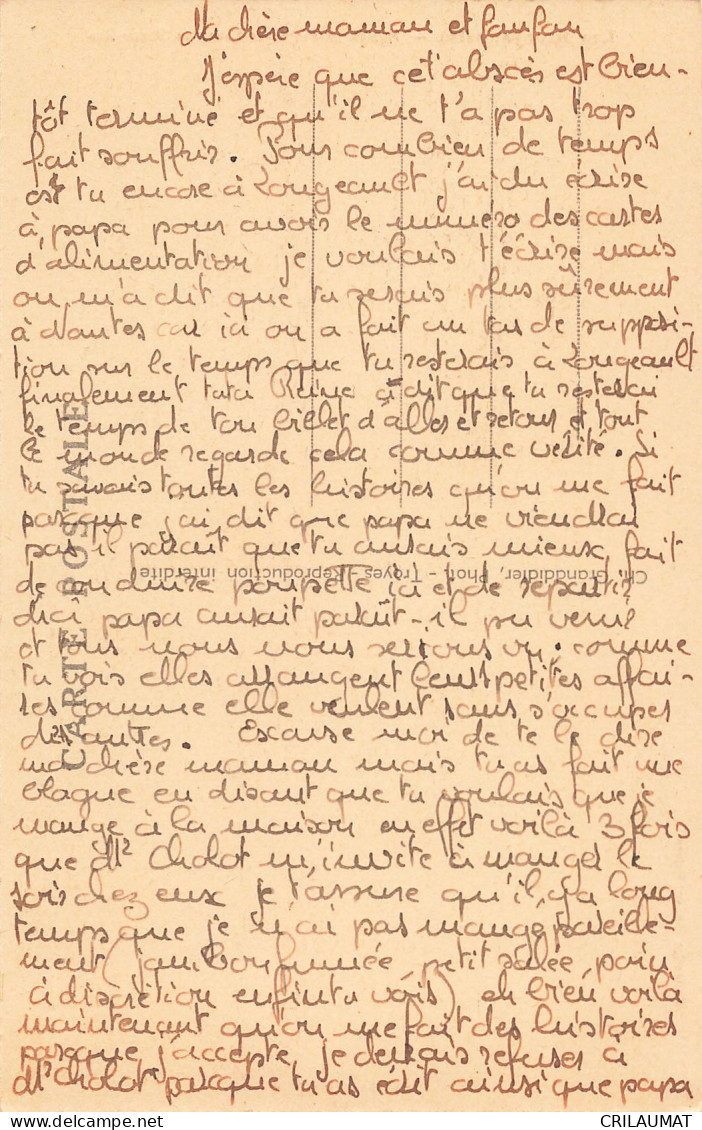 Ma chère maman et fanfan
J'espère que cet abscès est bien-
tôt terminé et qu'il ne t'a pas trop
fait souffrir. Pour combien de temps
es tu encore à Longeault j'ai du écrire
à papa pour avoir le numéro des cartes
d'alimentation je voulais t'écrire mais
on m'a dit que tu serais plus sûrement
à Nantes car ici on a fait un tas de supposi-
tion sur le temps que tu resterais à Longeault
finalement tata Reine a dit que tu resterai
le temps de ton billet d'aller et retour et tout
le monde regarde cela comme vérité. Si
tu savais toutes les histoires qu'on me fait
parceque j'ai dit que papa ne viendrai
pas il parait que tu aurais mieux fait
de conduire poupette ici et de repartir
dici papa aurait parait-il pu venir
et tous nous nous serions vu. comme
tu vois elles arrangent leurs petites affai-
res comme elle veulent sans s'occuper
des autres. Excuse moi de te le dire
ma chère maman mais tu as fait une
blague en disant que tu voulais que je
mange à la maison en effet voilà 3 fois
que Mr Cholot m'invite à manger le
soir chez eux je t'assure qu'il y a long
temps que je n'ai pas mangé pareille-
ment (jambon fumée, petit salée, pain
à discrétion enfin tu vois) eh bien voilà
maintenant qu'on me fait des histoires
parceque j'accepte, je devrais refuser à
Mr Cholot parceque tu as écrit ainsi que papa
CARTE POSTALE
Ch. Granddidier, Phot. - Troyes - Reproduction interdite
delcampe.net
CRILAUMAT